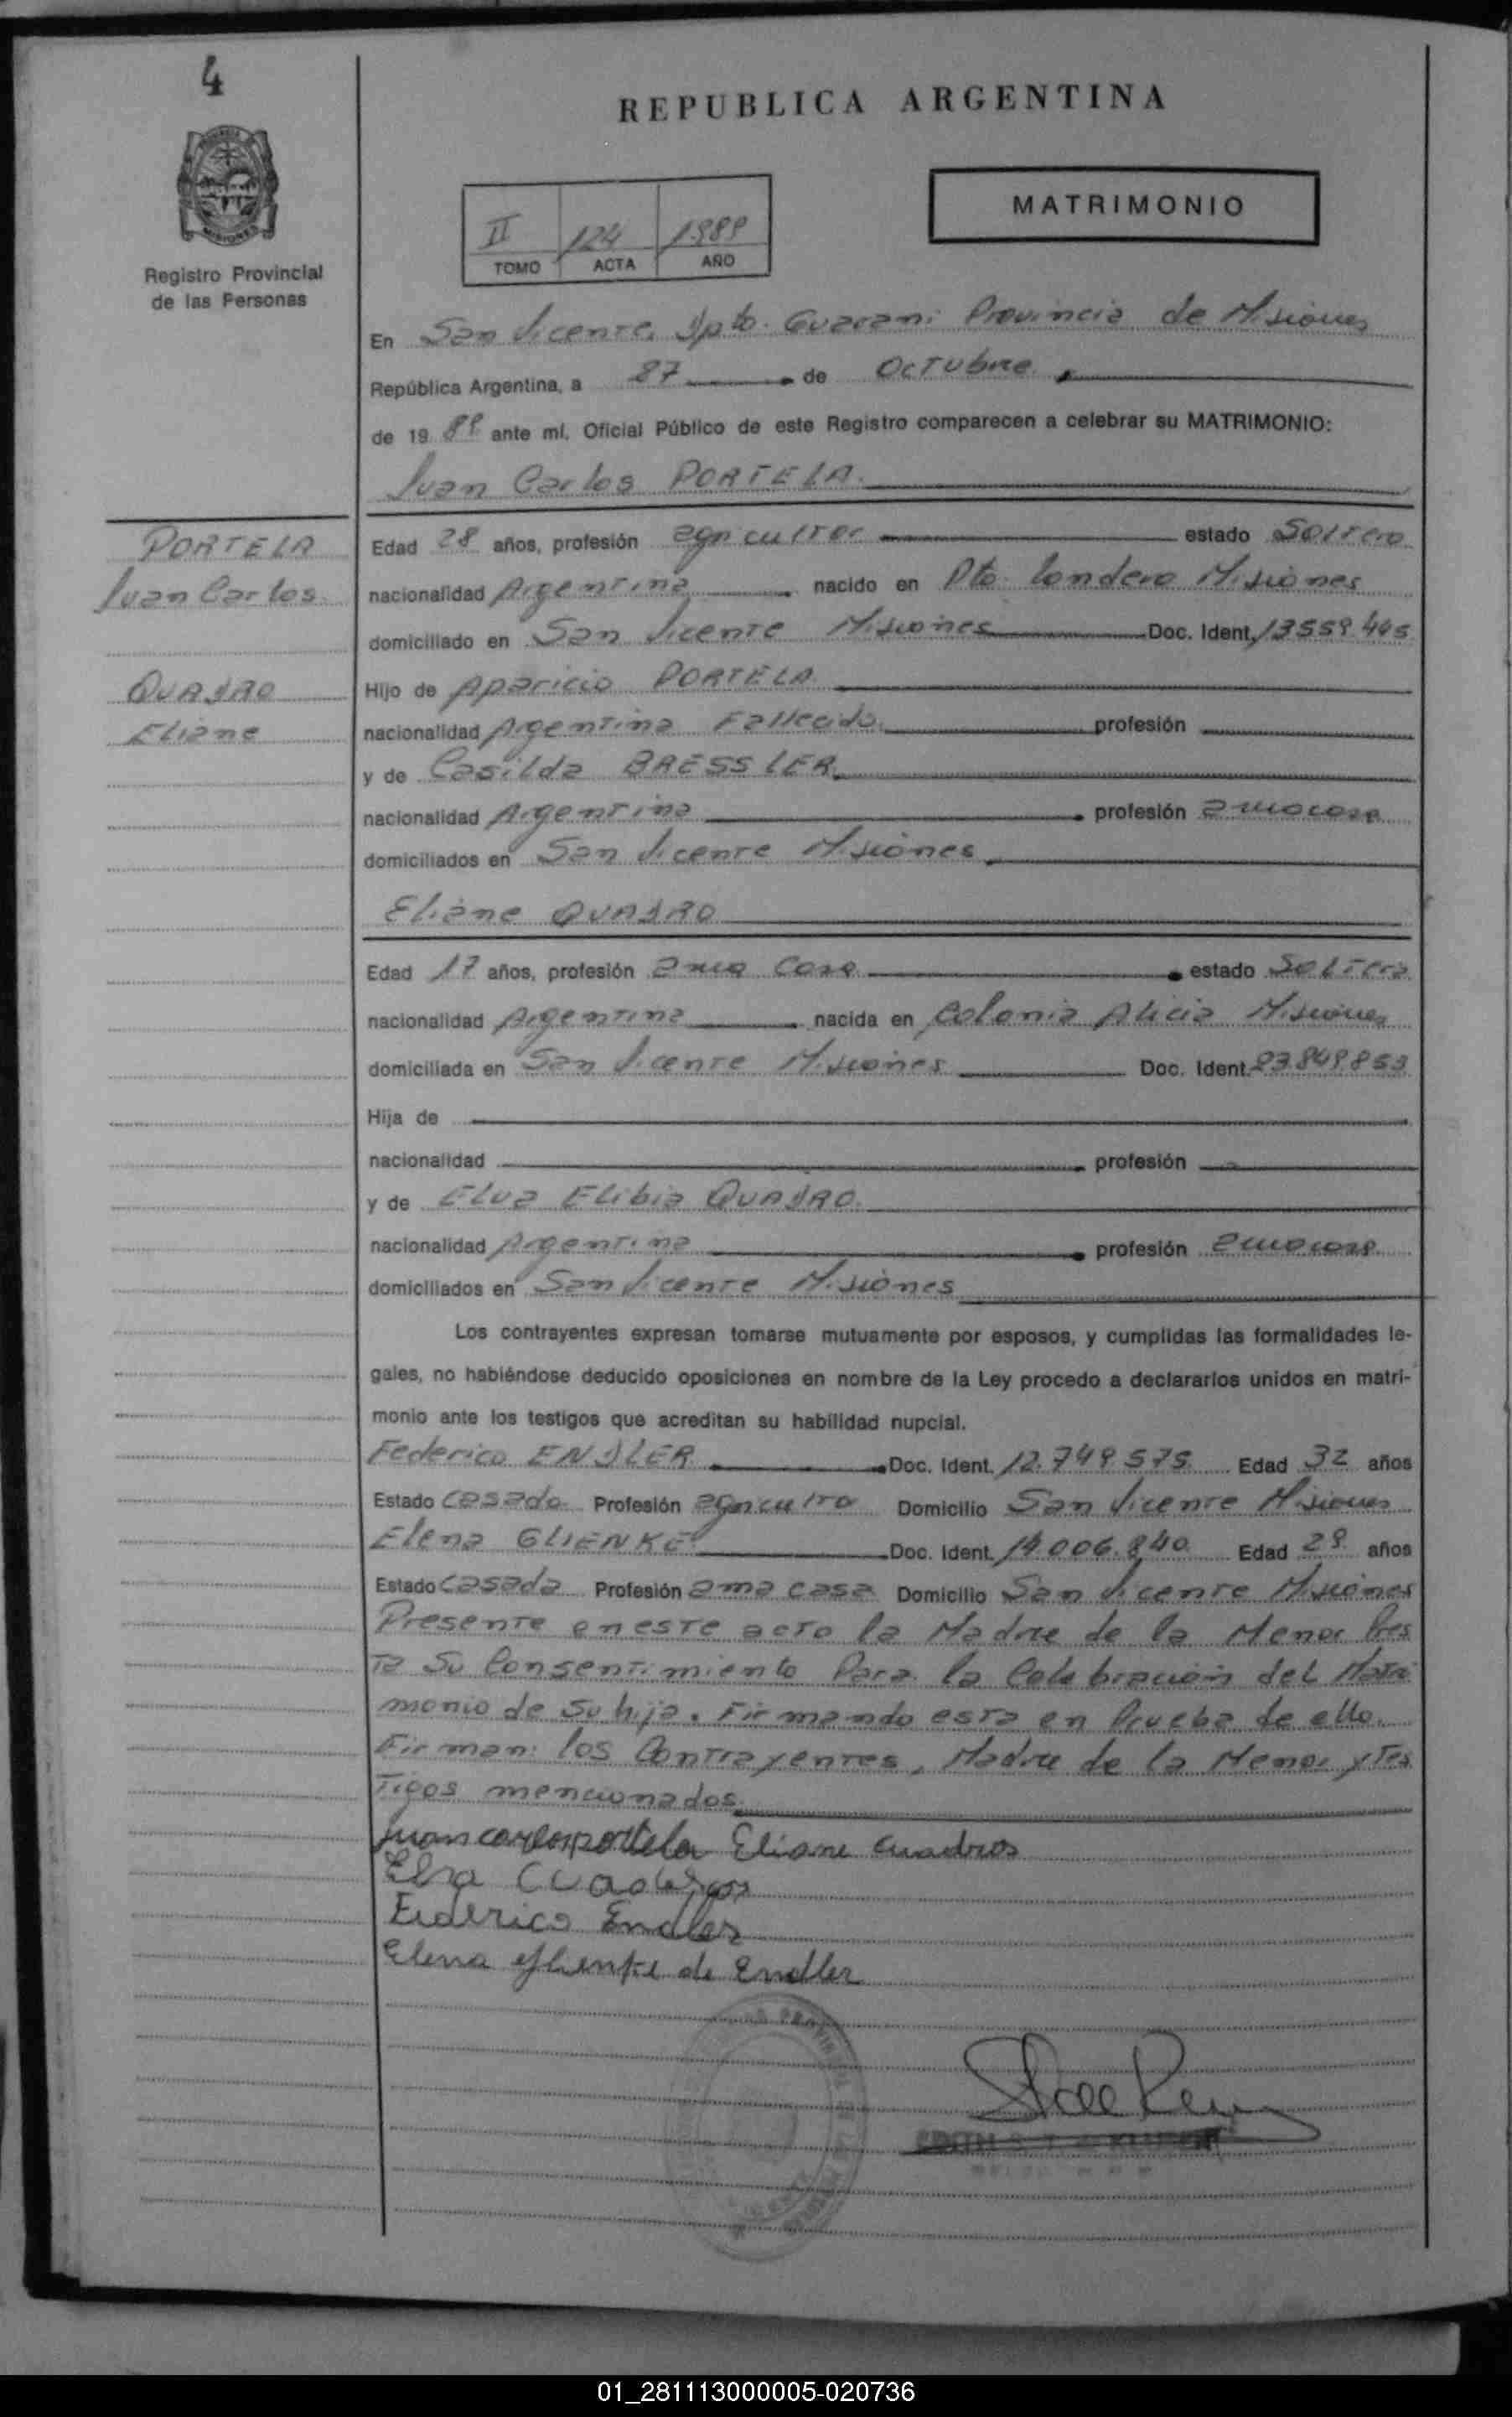 4
REPUBLICA ARGENTINA
MATRIMONIO
Registro Provincial
de las Personas
MISIONES
II 124 1989
TOMO ACTA AÑO
En San Vicente, Dpto. Guarani Provincia de Misiones
República Argentina, a 27 de Octubre
de 19 89 ante mí, Oficial Público de este Registro comparecen a celebrar su MATRIMONIO:
Juan Carlos PORTELA
PORTELA
Juan Carlos
QUADRO
Eliane
Edad 28 años, profesión agricultor estado Soltero
nacionalidad Argentina nacido en Pto Londero Misiones
domiciliado en San Vicente Misiones Doc. Ident. 13559.445
Hijo de Aparicio PORTELA
nacionalidad Argentina Fallecido profesión
y de Casilda BRESSLER
nacionalidad Argentina profesión ama casa
domiciliados en San Vicente Misiones
Eliane QUADRO
Edad 17 años, profesión ama casa estado Soltera
nacionalidad Argentina nacida en Colonia Alicia Misiones
domiciliada en San Vicente Misiones Doc. Ident. 23.849.853
Hija de
nacionalidad profesión
y de Elva Elibia QUADRO
nacionalidad Argentina profesión ama casa
domiciliados en San Vicente Misiones
Los contrayentes expresan tomarse mutuamente por esposos, y cumplidas las formalidades le-
gales, no habiéndose deducido oposiciones en nombre de la Ley procedo a declararlos unidos en matri-
monio ante los testigos que acreditan su habilidad nupcial.
Federico ENDLER Doc. Ident. 12.749.575 Edad 32 años
Estado casado Profesión agricultor Domicilio San Vicente Misiones
Elena GLIENKE Doc. Ident. 14.006.840 Edad 29 años
Estado casada Profesión ama casa Domicilio San Vicente Misiones
Presente en este acto la Madre de la Menor Pres
ta Su Consentimiento Para la Celebración del Matri
monio de su hija. Firmando esta en Prueba de ello.
Firman: los Contrayentes, Madre de la Menor y Tes
Tigos mencionados
Juan carlos portela Eliane Cuadros
Elva Cuadros
Federico Endler
Elena Glienke de Endler
01_281113000005-020736